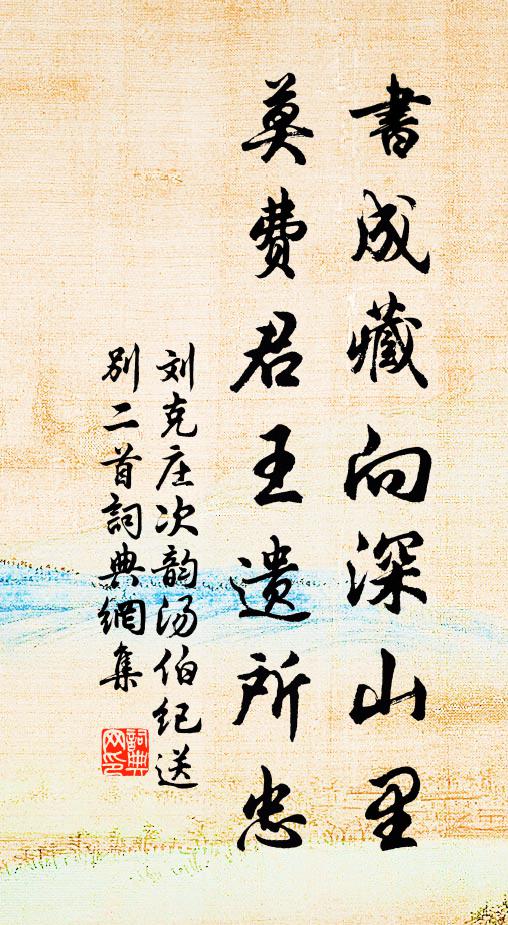 書成藏向深山里
莫費君王遗所忠
刘克庄次韵汤伯纪送
别二首詞典網集
詞典
网印